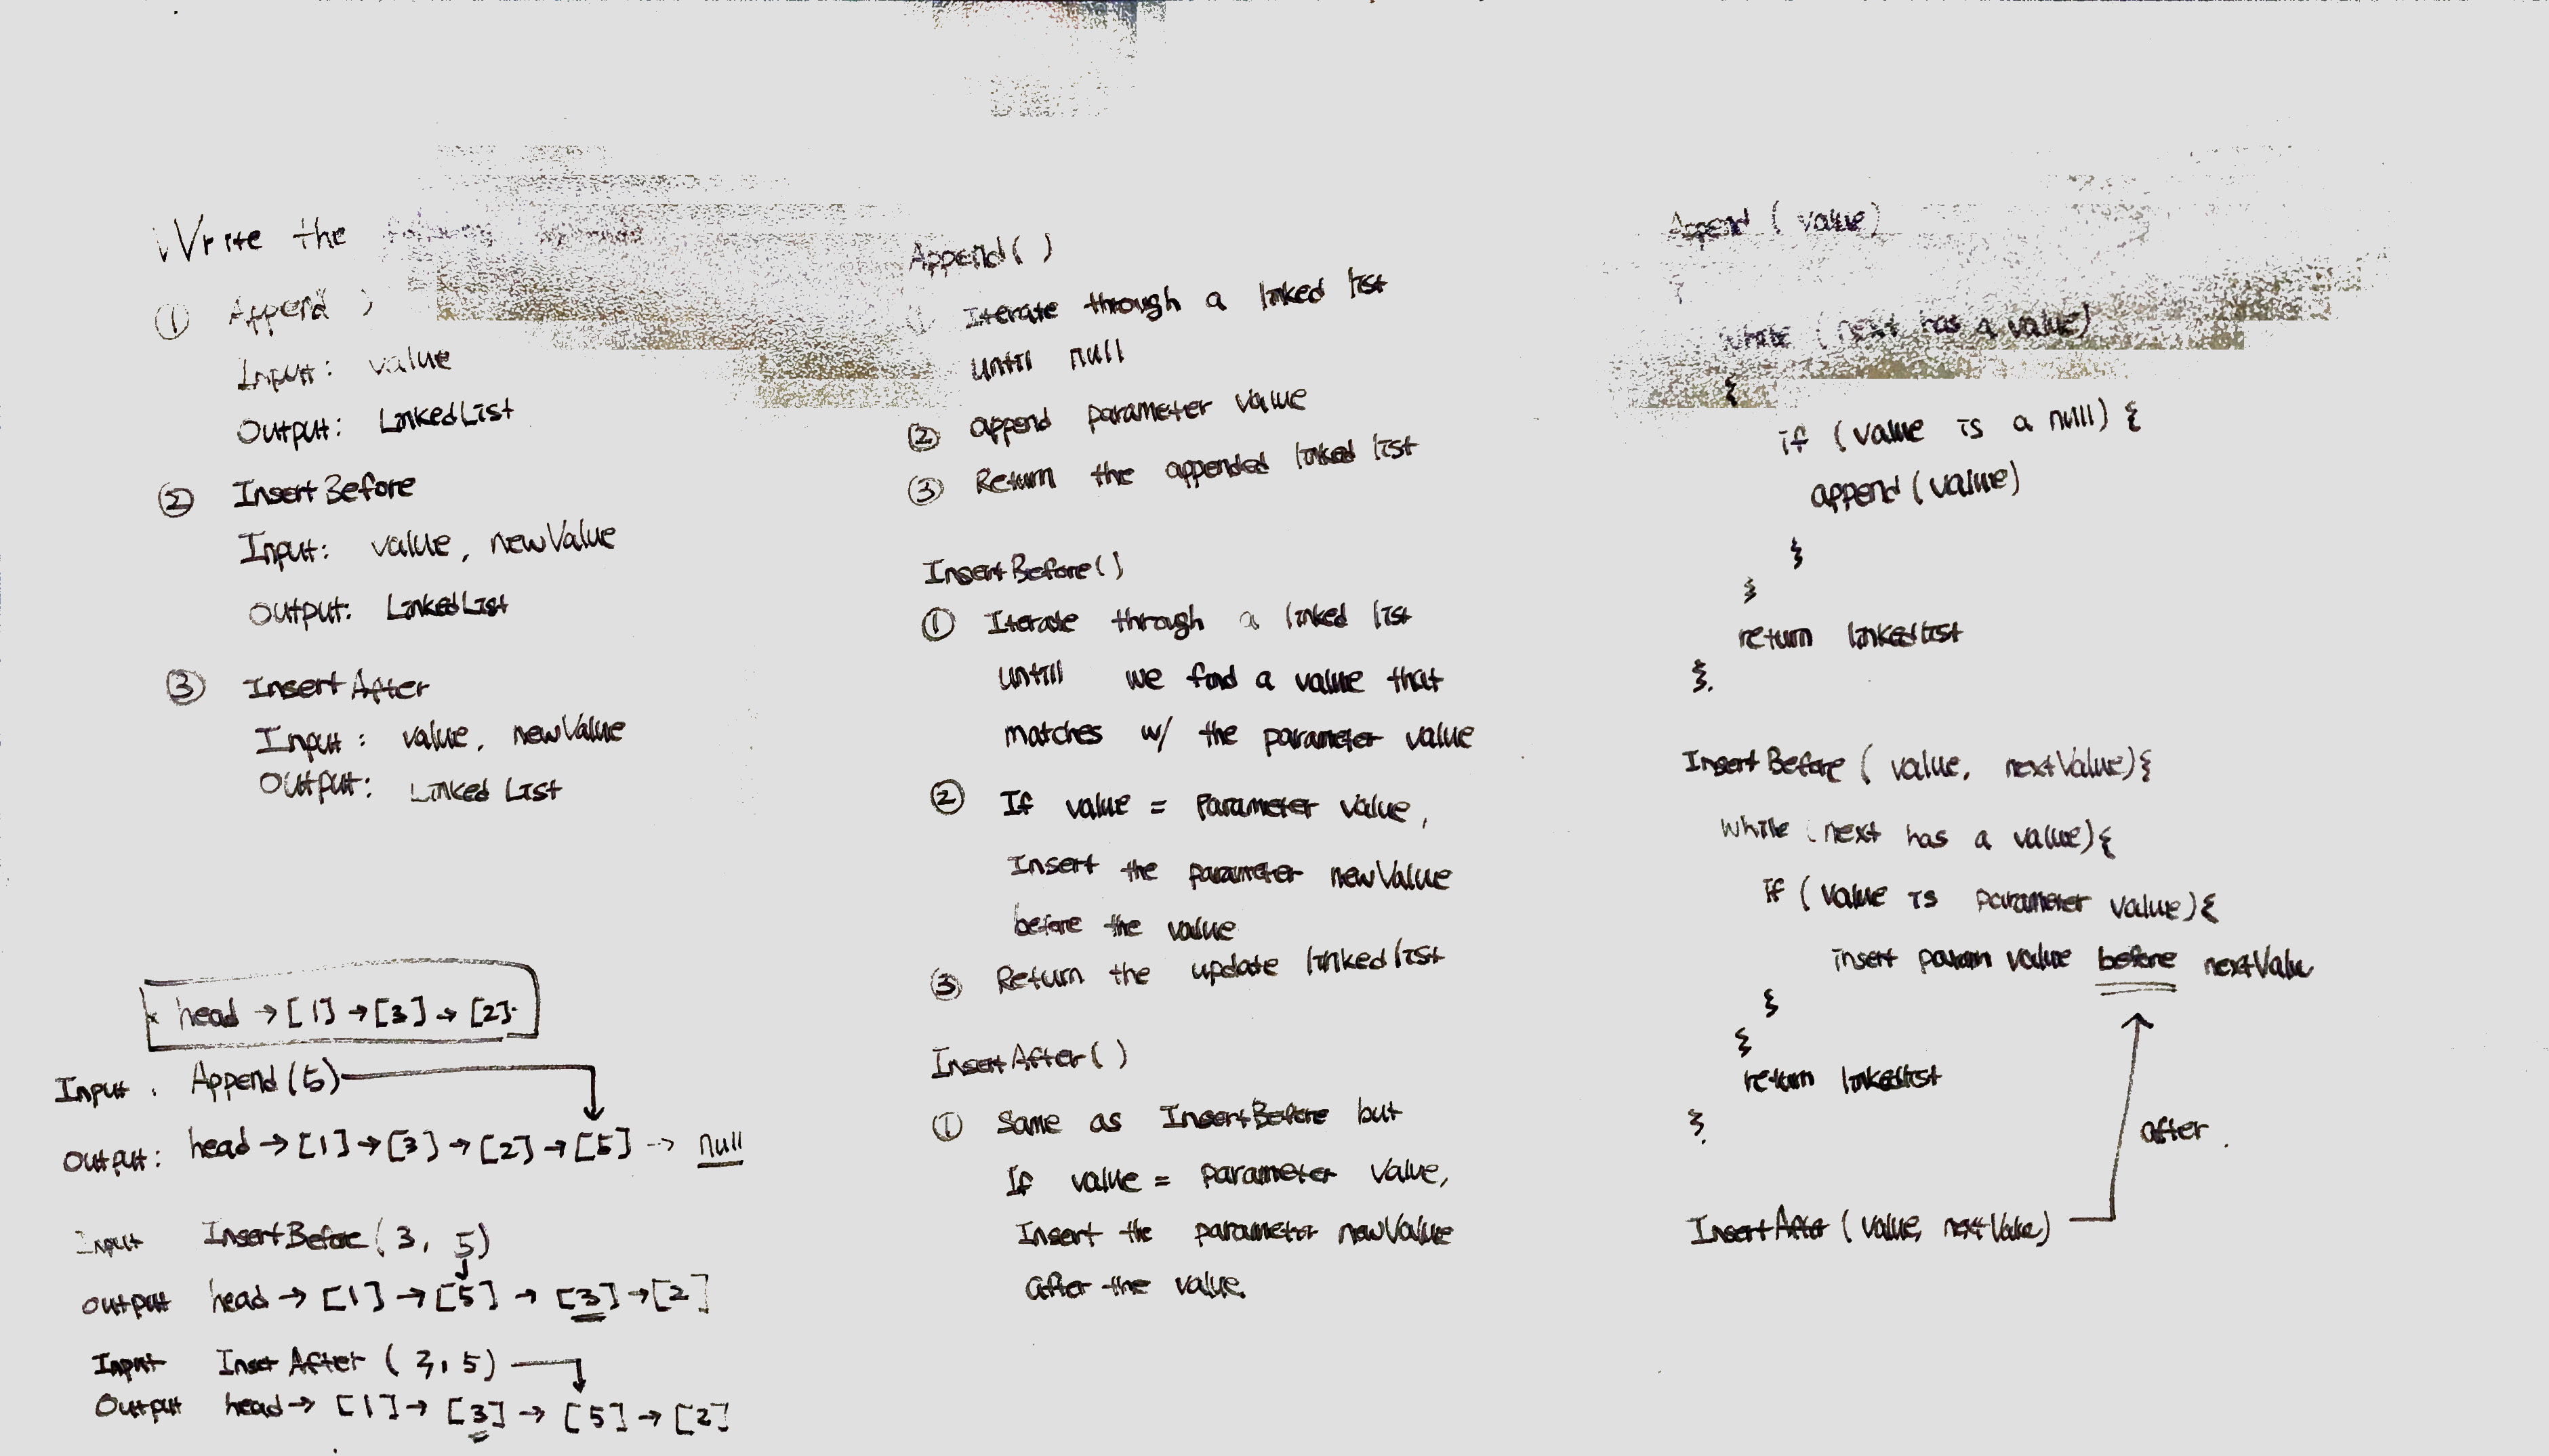 Write the
① Append
Input: value
Output: LinkedList
② InsertBefore
Input: value, newValue
Output: LinkedList
③ InsertAfter
Input: value, newValue
Output: Linked List
head → [1] → [3] → [2]
Input: Append(5)
Output: head → [1] → [3] → [2] → [5] → null
Input InsertBefore(3, 5)
Output head → [1] → [5] → [3] → [2]
Input Inset After (3, 5)
Output head → [1] → [3] → [5] → [2]
Append( )
① Iterate through a linked list
untill null
② append parameter value
③ Return the appended linked list
InsertBefore()
① Iterate through a linked list
untill we find a value that
matches w/ the parameter value
② If value = Parameter value,
Insert the parameter newValue
before the value
③ Return the update linkedlist
InsertAfter( )
① Same as InsertBefore but
If value = parameter value,
Insert the parameter newValue
after the value.
Append (value)
{
while (next has a value)
{
if (value is a null) {
append(value)
}
}
return linkedlist
}.
InsertBefore ( value, nextValue){
while (next has a value){
if (value is parameter value){
insert param value before nextValue
}
{
return linkedlist
}.
after.
InsertAfter (value, nextValue)